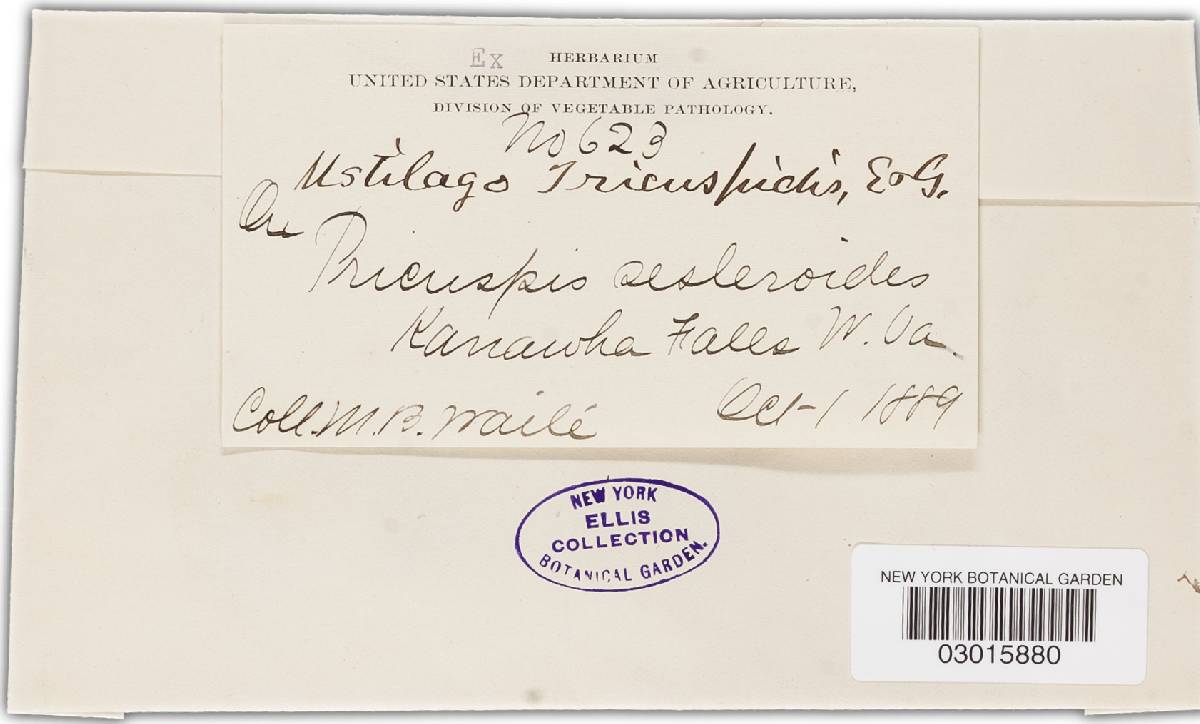 Ex HERBARIUM
UNITED STATES DEPARTMENT OF AGRICULTURE,
DIVISION OF VEGETABLE PATHOLOGY.
No 623
Ustilago Tricuspidis, E&G.
On
Tricuspis sesleroides
Kanawha Falls W. Va.
Coll. M. B. Waite Oct-1 1889
NEW YORK
ELLIS
COLLECTION
BOTANICAL GARDEN.
NEW YORK BOTANICAL GARDEN
03015880